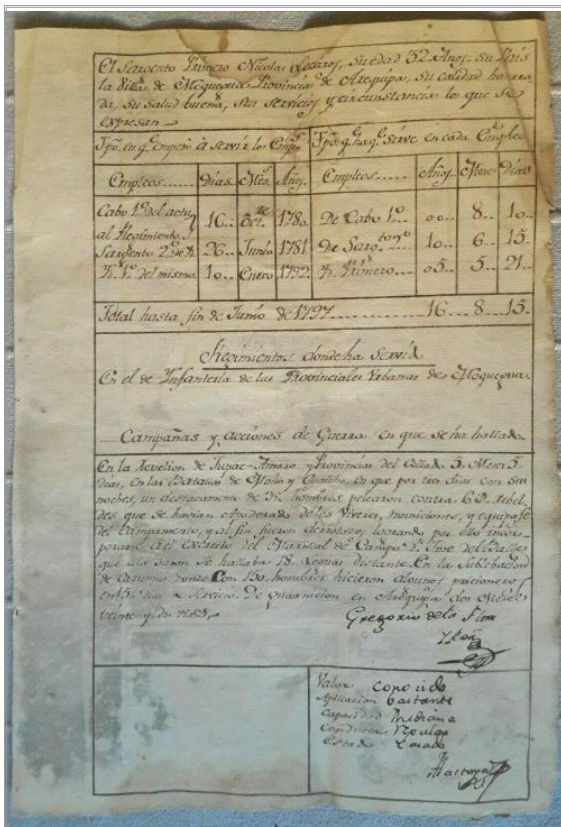 El Sargento Primero Nicolas, su edad 52 Años: su País
la Villa de Moquegua Provincia de Arequipa, su calidad honra-
da, su salud buena, sus servicios y circunstancias los que se
expresan
Tpo. en q.e empezó á servir los Emp.s Tpo. q.e ha q.e sirve en cada Empleo
Empleos Dias Mes.s Años. Empleos Años. Meses Dias
Cabo 1.º del actu-
al Regimiento 16 Oct.re 1780 De Cabo 1.º 00 8 10
Sargento 2.º de 26 Junio 1781 De Sarg.to 2.º 10 6 15
1.º del mismo 10 Enero 1792 Primero 05 5 21
Total hasta fin de Junio de 1797 16 8 15
Regimientos donde ha Servido
En el de Infanteria de las Provinciales Urbanas de Moquegua
Campañas y acciones de Guerra en que se ha hallado
En la Revelion de Tupac-Amaro y Provincias del Collado 5 Meses 5
dias, en las Batallas de y en que por tres dias con sus
noches, un destacamento de hombres pelearon contra rebel-
des que se havian apoderado de los viveres, municiones, y equipaje
del Campamento, y al fin fueron derrotados, logrando por ello incor-
porarse al Exercito del Mariscal de Campo D.n Jose del Valle
que a la sazon se hallaba 18 leguas distante. En la Sublebacion
de donde Con 150 hombres hicieron algunos pricioneros
dias de servicio. De guarnicion en Arequipa dos Meses
veinte y dos dias
Gregorio de la Flor
Valor conocido
Aplicacion bastante
Capacidad Mediana
Conducta Regular
Estado Casado